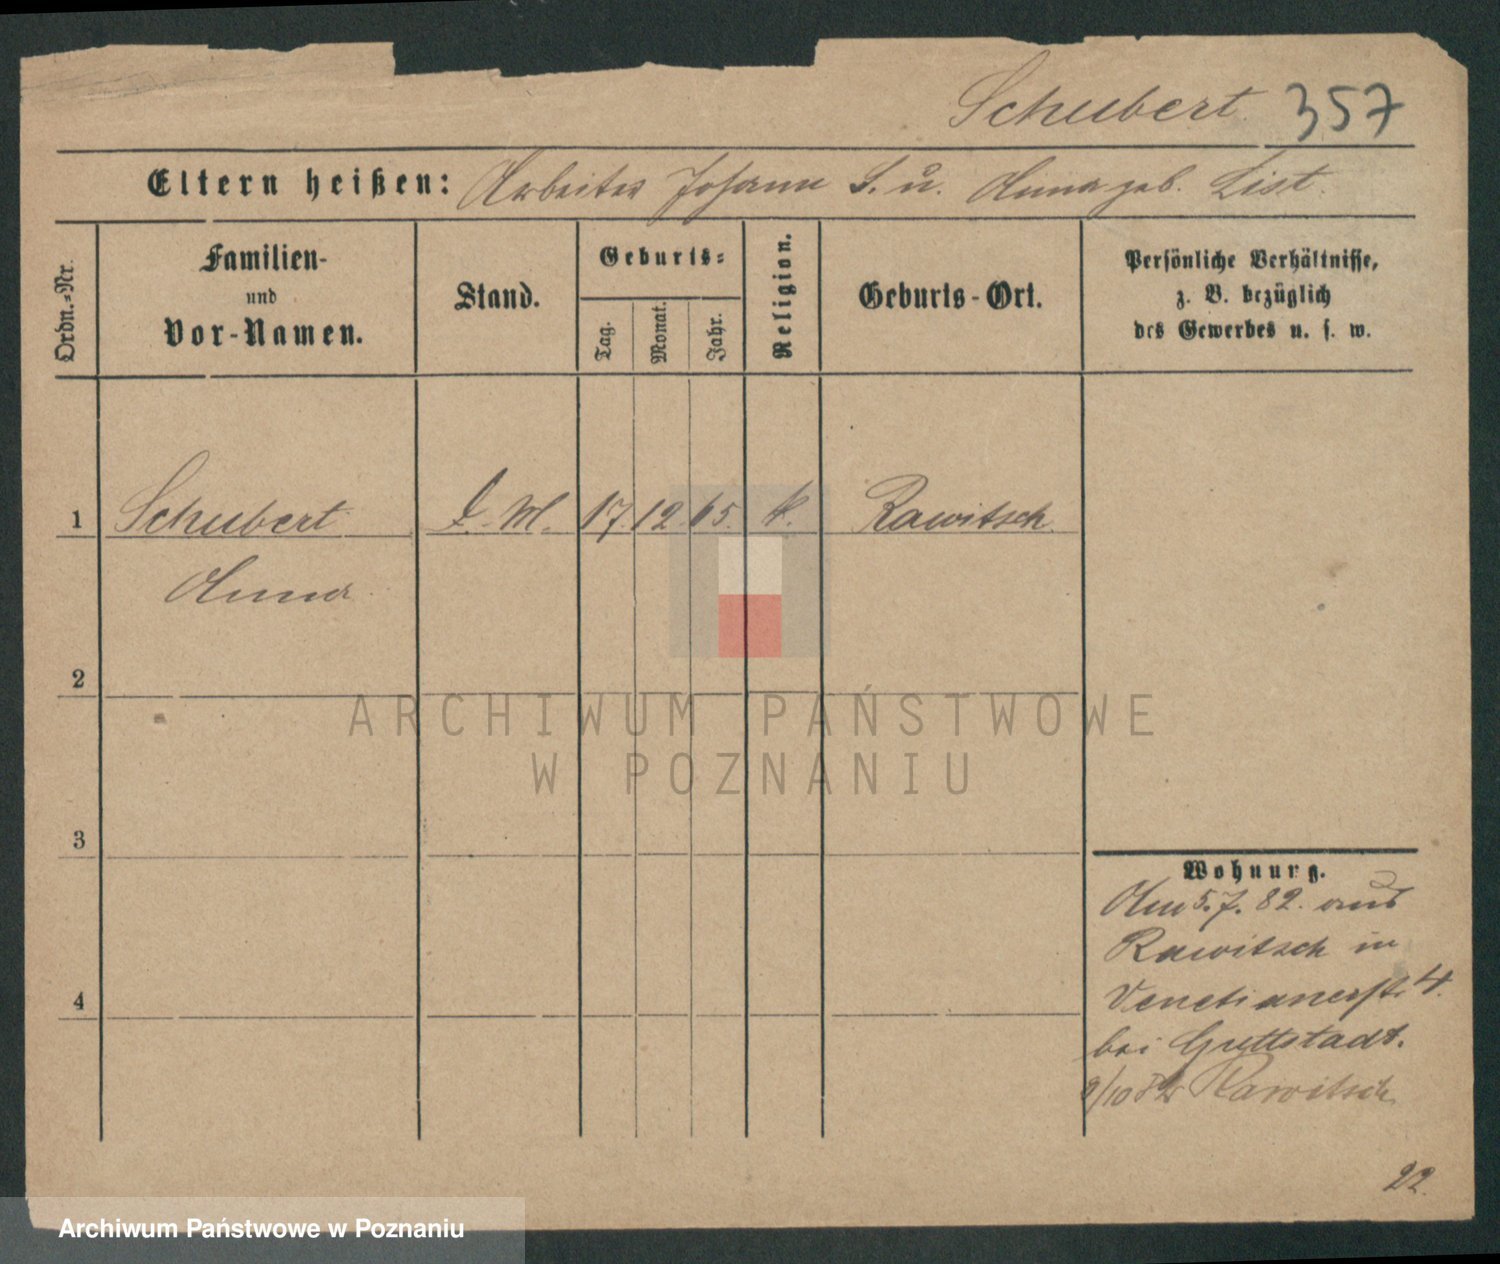 Schubert 357
Eltern heißen: Arbeiter Johann S. u. Anna geb. List.
Ordn.-Nr.
Familien-
und
Vor-Namen.
Stand.
Geburts-
Tag.
Monat.
Jahr.
Religion.
Geburts-Ort.
Persönliche Verhältnisse,
z. B. bezüglich
des Gewerbes u. s. w.
1 Schubert D. M. 17. 12. 65. k. Rawitsch
Anna
2
3
4
ARCHIWUM PAŃSTWOWE
W POZNANIU
Wohnung.
Am 5.7.82. aus
Rawitsch in
Venetianerstr. 4.
bei Guttstadt.
9/10 82 Rawitsch
22.
Archiwum Państwowe w Poznaniu